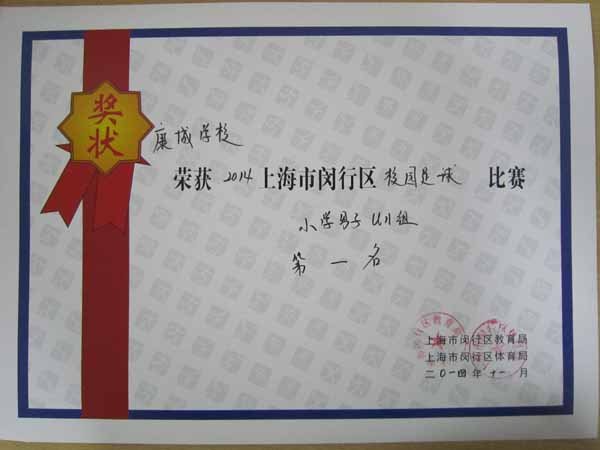 奖状
康城学校
荣获 2014 上海市闵行区 校园足球 比赛
小学男子 U11组
第一名
上海市闵行区教育局
上海市闵行区体育局
二〇一四年十一月